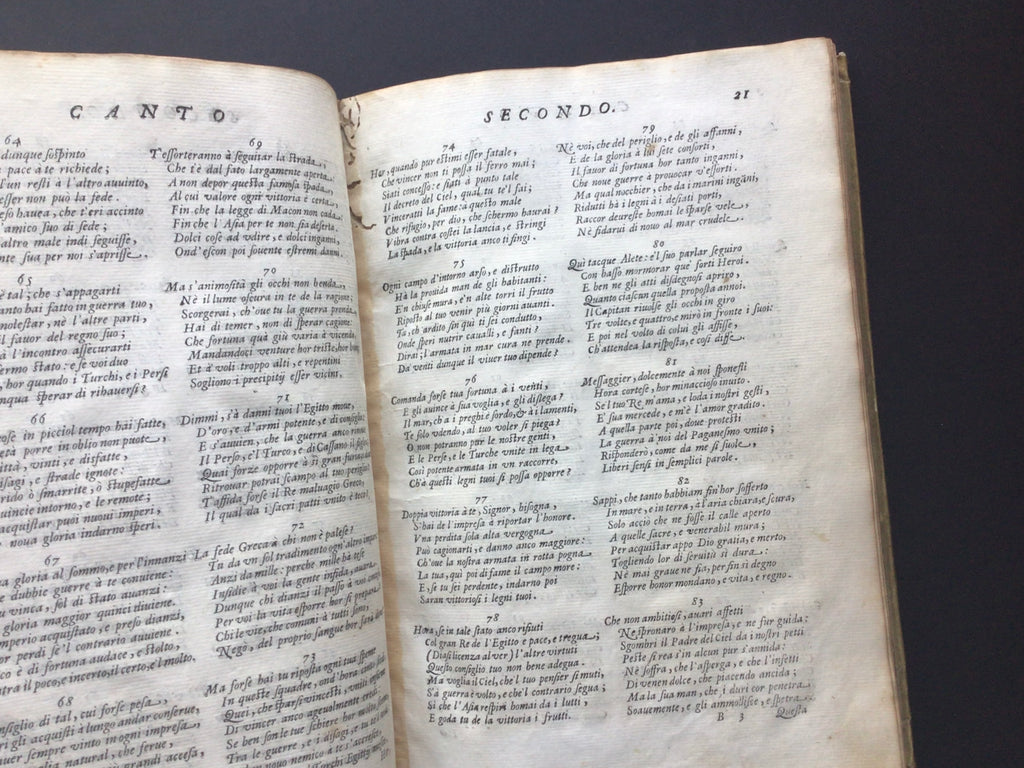 CANTO
64
dunque sospinto
pace à te richiede;
l'un resti à l'altro auuinto,
esser non può la fede.
eso hauea, che t'eri accinto
l'amico suo di sede;
altro male indi seguisse,
nte sua per noi s'aprisse.
65
è tal; che s'appagarti
anto hai fatto in guerra tuo,
molestar, nè l'altre parti,
il fauor del regno suo;
à l'incontro assecurarti
ermo stato: e se voi duo
hor quando i Turchi, e i Persi
nqua sperar di rihauersi?
66
ose in picciol tempo hai fatte,
età porre in oblio non puote,
ittà, vinti, e disfatte,
isagi, e strade ignote:
rido ò smarrite, ò stupefatte
uincie intorno, e le remote;
acquistar puoi nuoui imperi,
noua gloria indarno speri.
67
a gloria al sommo, e per l'innanzi
e dubbie guerre à te conuiene:
vinca, sol di stato auanzi:
gloria maggior quinci diuiene.
mperio acquistato, e preso dianzi,
or perdi se'l contrario auuiene.
co è di fortuna audace, e stolto,
tra il poco, e incerto, il certo, e'l molto.
68
nsiglio di tal, cui forse pesa,
gli acquisti à lungo andar conserue,
uer sempre vinto in ogni impresa,
glia natural, che ferue,
grandi accesa,
69
T'essorteranno à seguitar la strada,
Che t'è dal fato largamente aperta,
A non depor questa famosa spada,
Al cui valore ogni vittoria è certa,
Fin che la legge di Macon non cada,
Fin che l'Asia per te non sia deserta.
Dolci cose ad vdire, e dolci inganni,
Ond'escon poi souente estremi danni.
70
Ma s'animosità gli occhi non benda,
Nè il lume oscura in te de la ragione;
Scorgerai, ch'oue tu la guerra prenda,
Hai di temer, non di sperar cagione:
Che fortuna quà giù varia à vicenda,
Mandandoci venture hor triste, hor buone;
Et à voli troppo alti, e repentini
Sogliono i precipitij esser vicini.
71
Dimmi, s'à danni tuoi l'Egitto moue,
D'oro, e d'armi potente, e di consiglio:
E s'auuien, che la guerra anco rinoue
Il Perso, e'l Turco, e di Cassano il figlio;
Quai forze opporre à sì gran furia
Ritrouar potrai scampo al tuo periglio?
T'affida forse il Re maluagio Greco,
Il qual da i sacri patti vnito è teco?
72
La fede Greca à chi non è palese?
Tu da vn sol tradimento ogni altro impara,
Anzi da mille: perche mille ha tese
Insidie à voi la gente infida, auara.
Dunque chi dianzi il passo à voi contese,
Per voi la vita esporre hor si prepara?
Chi le vie, che comuni à tutti sono,
Negò, del proprio sangue hor sarà dono?
73
Ma forse hai tu riposta ogni tua speme
In queste squadre, ond'hora cinto siedi.
Quei, che sparsi vincesti, vniti insieme
Di vincer anco ageuolmente credi,
Se ben son le tue schiere hor molto sceme
Tra le guerre, e i disagi, e tu te'l vedi:
nouo nemico à te s'accresce,
Turchi Egitti
SECONDO.
21
74
Hor, quando pur estimi esser fatale,
Che vincer non ti possa il ferro mai;
Siati concesso: e siati à punto tale
Il decreto del Ciel, qual tu te'l fai;
Vinceratti la fame: à questo male
Che rifugio, per dio, che schermo haurai?
Vibra contra costei la lancia, e stringi
La spada, e la vittoria anco ti fingi.
75
Ogni campo d'intorno arso, e distrutto
Hà la prouida man de gli habitanti:
E'n chiuse mura, e'n alte torri il frutto
Riposto al tuo venir più giorni auanti.
Tu, ch'ardito sin qui ti sei condutto,
Onde speri nutrir caualli, e fanti?
Dirai; l'armata in mar cura ne prende.
Da venti dunque il viuer tuo dipende?
76
Comanda forse tua fortuna à i venti,
E gli auince à sua voglia, e gli dislega?
Il mar, ch'a i preghi è sordo, & à i lamenti,
Te solo vdendo, al tuo voler si piega?
O non potranno pur le nostre genti,
E le Perse, e le Turche vnite in lega
Così potente armata in vn raccorre,
Ch'à questi legni tuoi si possa opporre?
77
Doppia vittoria à te, Signor, bisogna,
S'hai de l'impresa à riportar l'honore.
Vna perdita sola alta vergogna
Può cagionarti, e danno anco maggiore:
Ch'oue la nostra armata in rotta pogna
La tua, quì poi di fame il campo more:
E, se tu sei perdente, indarno poi
Saran vittoriosi i legni tuoi.
78
Hora, se in tale stato anco rifiuti
Col gran Re de l'Egitto e pace, e tregua,
(Diasi licenza al ver) l'altre virtuti
Questo consiglio tuo non bene adegua.
Ma voglia il Ciel, che'l tuo pensier si muti,
S'à guerra è volto, e che'l contrario segua;
Sì che l'Asia respiri homai da i lutti,
E goda tu de la vittoria i frutti.
79
Nè voi, che del periglio, e de gli affanni,
E de la gloria à lui sete consorti,
Il fauor di fortuna hor tanto inganni,
Che noue guerre à prouocar v'essorti.
Ma qual nocchier, che da i marini ingāni
Ridutti hà i legni à i desiati porti,
Raccor deureste homai le sparse vele,
Nè fidarui di nouo al mar crudele.
80
Qui tacque Alete: e'l suo parlar seguiro
Con basso mormorar que' forti Heroi.
E ben ne gli atti disdegnosi apriro,
Quanto ciascun quella proposta annoi.
Il Capitan riuolse gli occhi in giro
Tre volte, e quattro, e mirò in fronte i suoi:
E poi nel volto di colui gli affisse,
Ch'attendea la risposta, e così disse.
81
Messaggier, dolcemente à noi sponesti
Hora cortese, hor minaccioso inuito.
Se'l tuo Re m'ama, e loda i nostri gesti,
E' sua mercede, e m'è l'amor gradito.
A quella parte poi, doue protesti
La guerra à noi del Paganesmo vnito;
Risponderò, come da me si suole,
Liberi sensi in semplici parole.
82
Sappi, che tanto habbiam fin'hor sofferto
In mare, e in terra, à l'aria chiara, e scura,
Solo acciò che ne fosse il calle aperto
A quelle sacre, e venerabil mura;
Per acquistar appo Dio gratia, e merto,
Togliendo lor di seruitù sì dura:
Nè mai graue ne fia, per fin sì degno
Esporre honor mondano, e vita, e regno.
83
Che non ambitiosi, auari affetti
Ne spronaro à l'impresa, e ne fur guida;
Sgombri il Padre del Ciel da i nostri petti
Peste sì rea s'in alcun pur s'annida:
Nè soffra, che l'asperga, e che l'infetti
Di venen dolce, che piacendo ancida;
Ma la sua man, che i duri cor penetra
Soauemente, e gli ammollisce, e spetra.
B 3 Questa